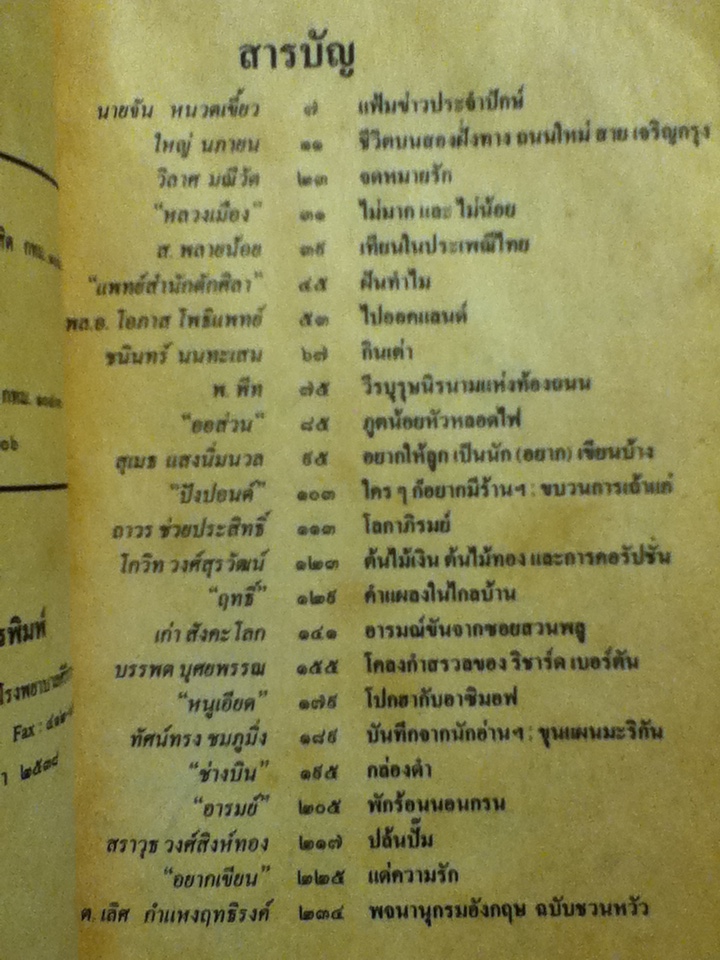 สารบัญ
นายจัน หนวดเขี้ยว ๗ แฟ้มข่าวประจำปักษ์
ใหญ่ นภายน ๑๑ ชีวิตบนสองฝั่งทาง ถนนใหม่ สาย เจริญกรุง
วิลาศ มณีวัต ๒๓ จดหมายรัก
“หลวงเมือง” ๓๑ ไม่มาก และ ไม่น้อย
ส. พลายน้อย ๓๙ เทียนในประเพณีไทย
“แพทย์สำนักตักศิลา” ๔๕ ฝันทำไม
พล.อ. โอภาส โพธิแพทย์ ๕๓ ไปออคแลนด์
ชนินทร์ นนทะเสน ๖๗ กินเต่า
พ. พีท ๗๕ วีรบุรุษนิรนามแห่งท้องถนน
“ออส่วน” ๘๕ ภูตน้อยหัวหลอดไฟ
สุเมธ แสงนิ่มนวล ๙๕ อยากให้ลูก เป็นนัก (อยาก) เขียนบ้าง
“ปังปอนด์” ๑๐๓ ใคร ๆ ก็อยากมีร้านฯ : ขบวนการเถ้าแก่
ถาวร ช่วยประสิทธิ์ ๑๑๓ โลกาภิรมย์
โกวิท วงศ์สุรวัฒน์ ๑๒๓ ต้นไม้เงิน ต้นไม้ทอง และการคอรัปชั่น
“ฤทธิ์” ๑๒๙ คำแผลงในไกลบ้าน
เก่า สังคะโลก ๑๔๑ อารมณ์ขันจากซอยสวนพลู
บรรพต บุศยพรรณ ๑๕๕ โคลงกำสรวลของ ริชาร์ด เบอร์ตัน
“หนูเอียด” ๑๗๙ โปกฮากับอาซิมอฟ
ทัศน์ทรง ชมภูมิ่ง ๑๘๙ บันทึกจากนักอ่านฯ : ขุนแผนมะริกัน
“ช่างบิน” ๑๙๕ กล่องดำ
“อารมย์” ๒๐๕ พักร้อนนอนกรน
สราวุธ วงศ์สิงห์ทอง ๒๑๗ ปล้นปั๊ม
“อยากเขียน” ๒๒๕ แด่ความรัก
ต. เลิศ กำแหงฤทธิรงค์ ๒๓๔ พจนานุกรมอังกฤษ ฉบับชวนหวัว
กทม.
๐๖
รพิมพ์
Fax :
๒๕๓๘